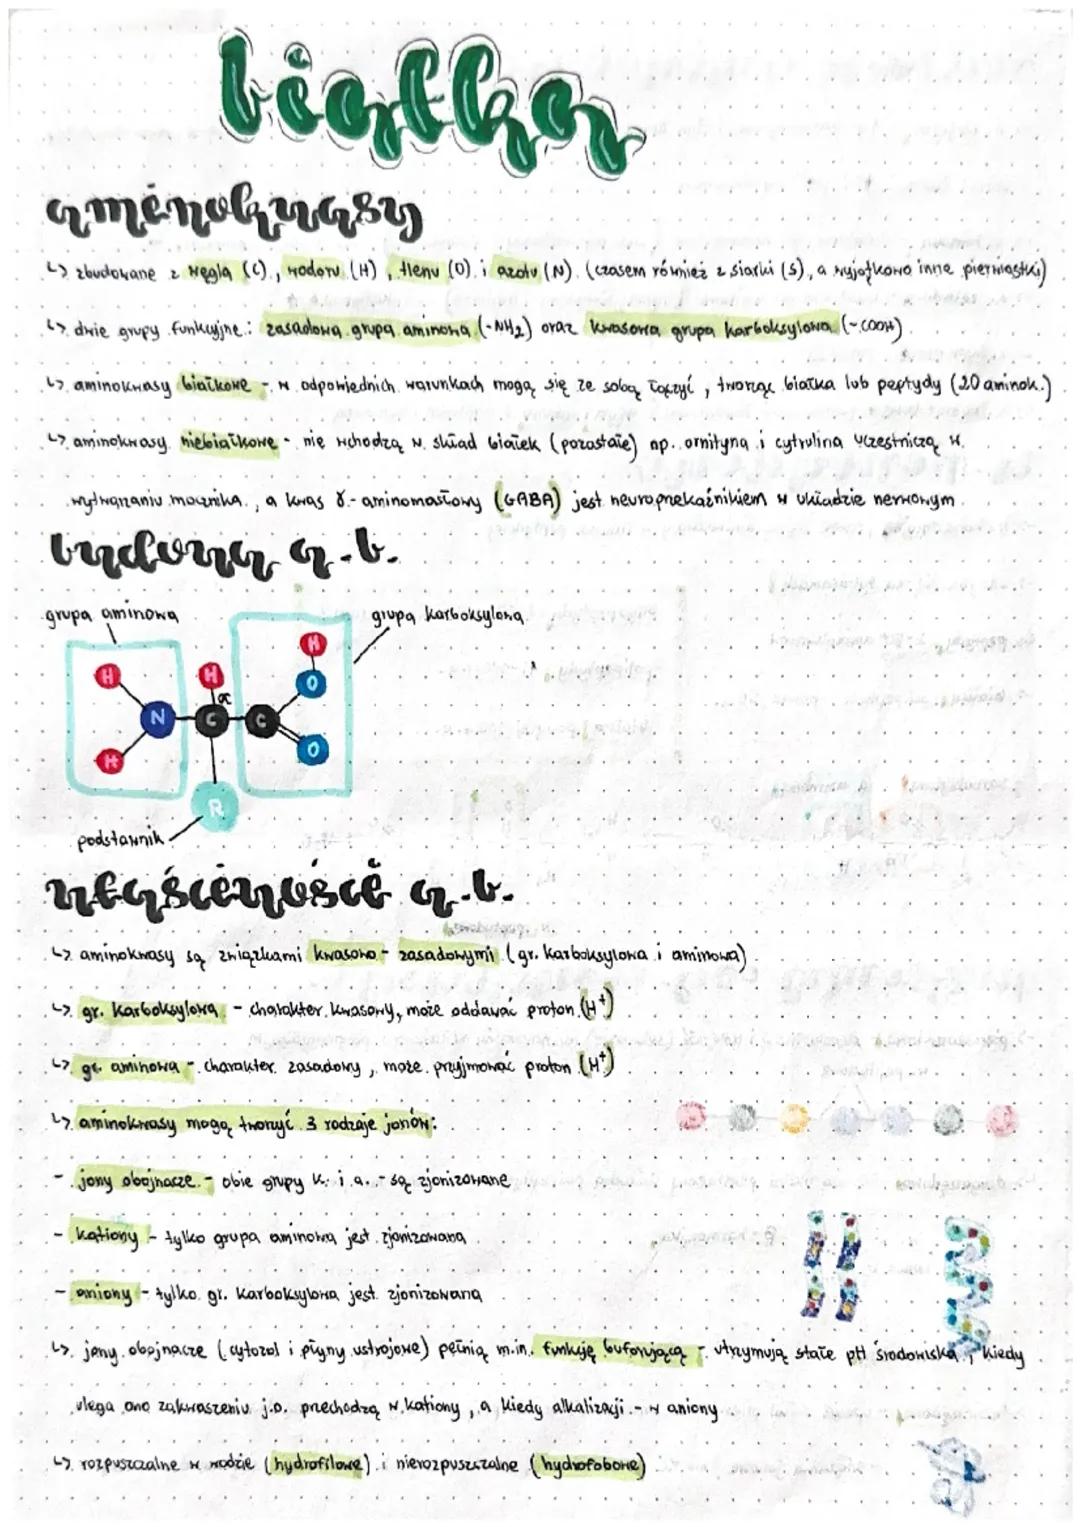 białka
aminokwasy
↳ zbudowane z węgla (C), wodoru (H), tlenu (O) i azotu (N) (czasem również z siarki (S), a wyjątkowo inne pierwiastki)
↳ dwie grupy funkcyjne: zasadowa grupa aminowa (-NH₂) oraz kwasowa grupa karboksylowa (-COOH)
↳ aminokwasy białkowe - w odpowiednich warunkach mogą się ze sobą łączyć, tworząc białka lub peptydy (20 aminok.)
↳ aminokwasy niebiałkowe - nie wchodzą w skład białek (pozostałe) np. ornityna i cytrulina uczestniczą w
wytwarzaniu mocznika, a kwas γ-aminomasłowy (GABA) jest neuroprzekaźnikiem w układzie nerwowym
budowa a.b.
grupa aminowa
grupa karboksylowa
H
H
H
O
α
N
C
C
H
O
R
podstawnik
właściwości a.b.
↳ aminokwasy są związkami kwasowo-zasadowymi (gr. karboksylowa i aminowa)
↳ gr. karboksylowa - charakter kwasowy, może oddawać proton (H⁺)
↳ gr. aminowa - charakter zasadowy, może przyjmować proton (H⁺)
↳ aminokwasy mogą tworzyć 3 rodzaje jonów:
- jony obojnacze - obie grupy k. i a. - są zjonizowane
- kationy - tylko grupa aminowa jest zjonizowana
- aniony - tylko gr. karboksylowa jest zjonizowana
↳ jony obojnacze (cytozol i płyny ustrojowe) pełnią m.in. funkcję buforującą - utrzymują stałe pH środowiska, kiedy
ulega ono zakwaszeniu j.o. przechodzą w kationy, a kiedy alkalizacji - w aniony
↳ rozpuszczalne w wodzie (hydrofilowe) i nierozpuszczalne (hydrofobowe)